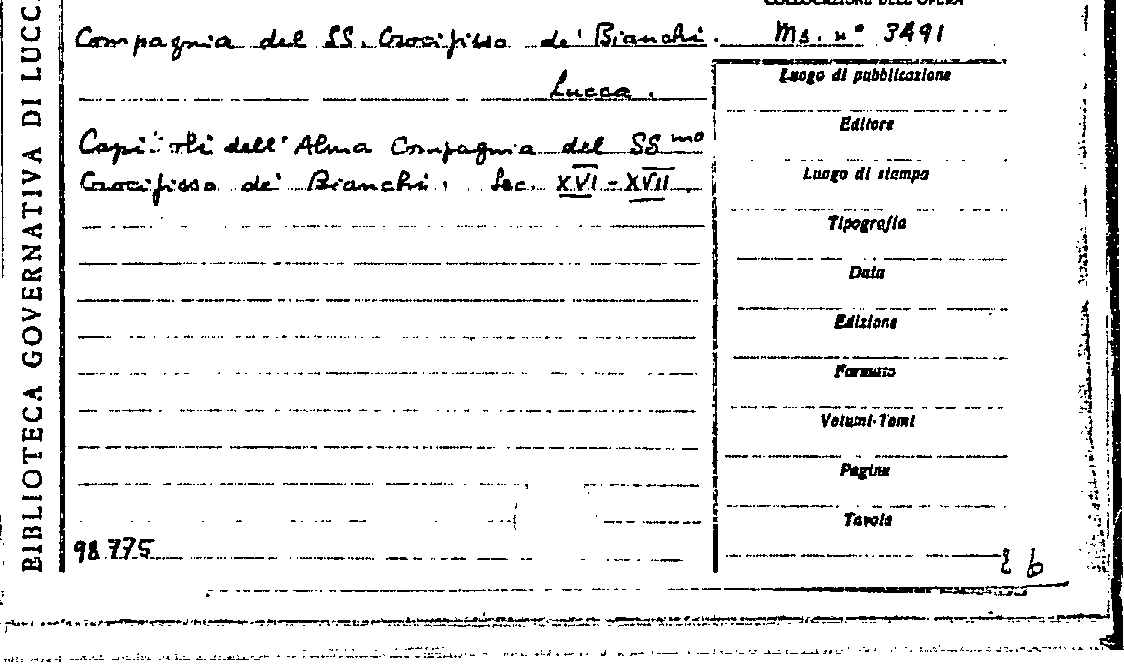 BIBLIOTECA GOVERNATIVA DI LUCCA
COLLOCAZIONE DELL'OPERA
Compagnia del SS. Crocifisso de' Bianchi. Ms. n° 3491
Lucca.
Capitoli dell'Alma Compagnia del SSmo
Crocifisso de' Bianchi. Sec. XVI - XVII
Luogo di pubblicazione
Editore
Luogo di stampa
Tipografia
Data
Edizione
Formato
Volumi-Tomi
Pagine
Tavole
98775